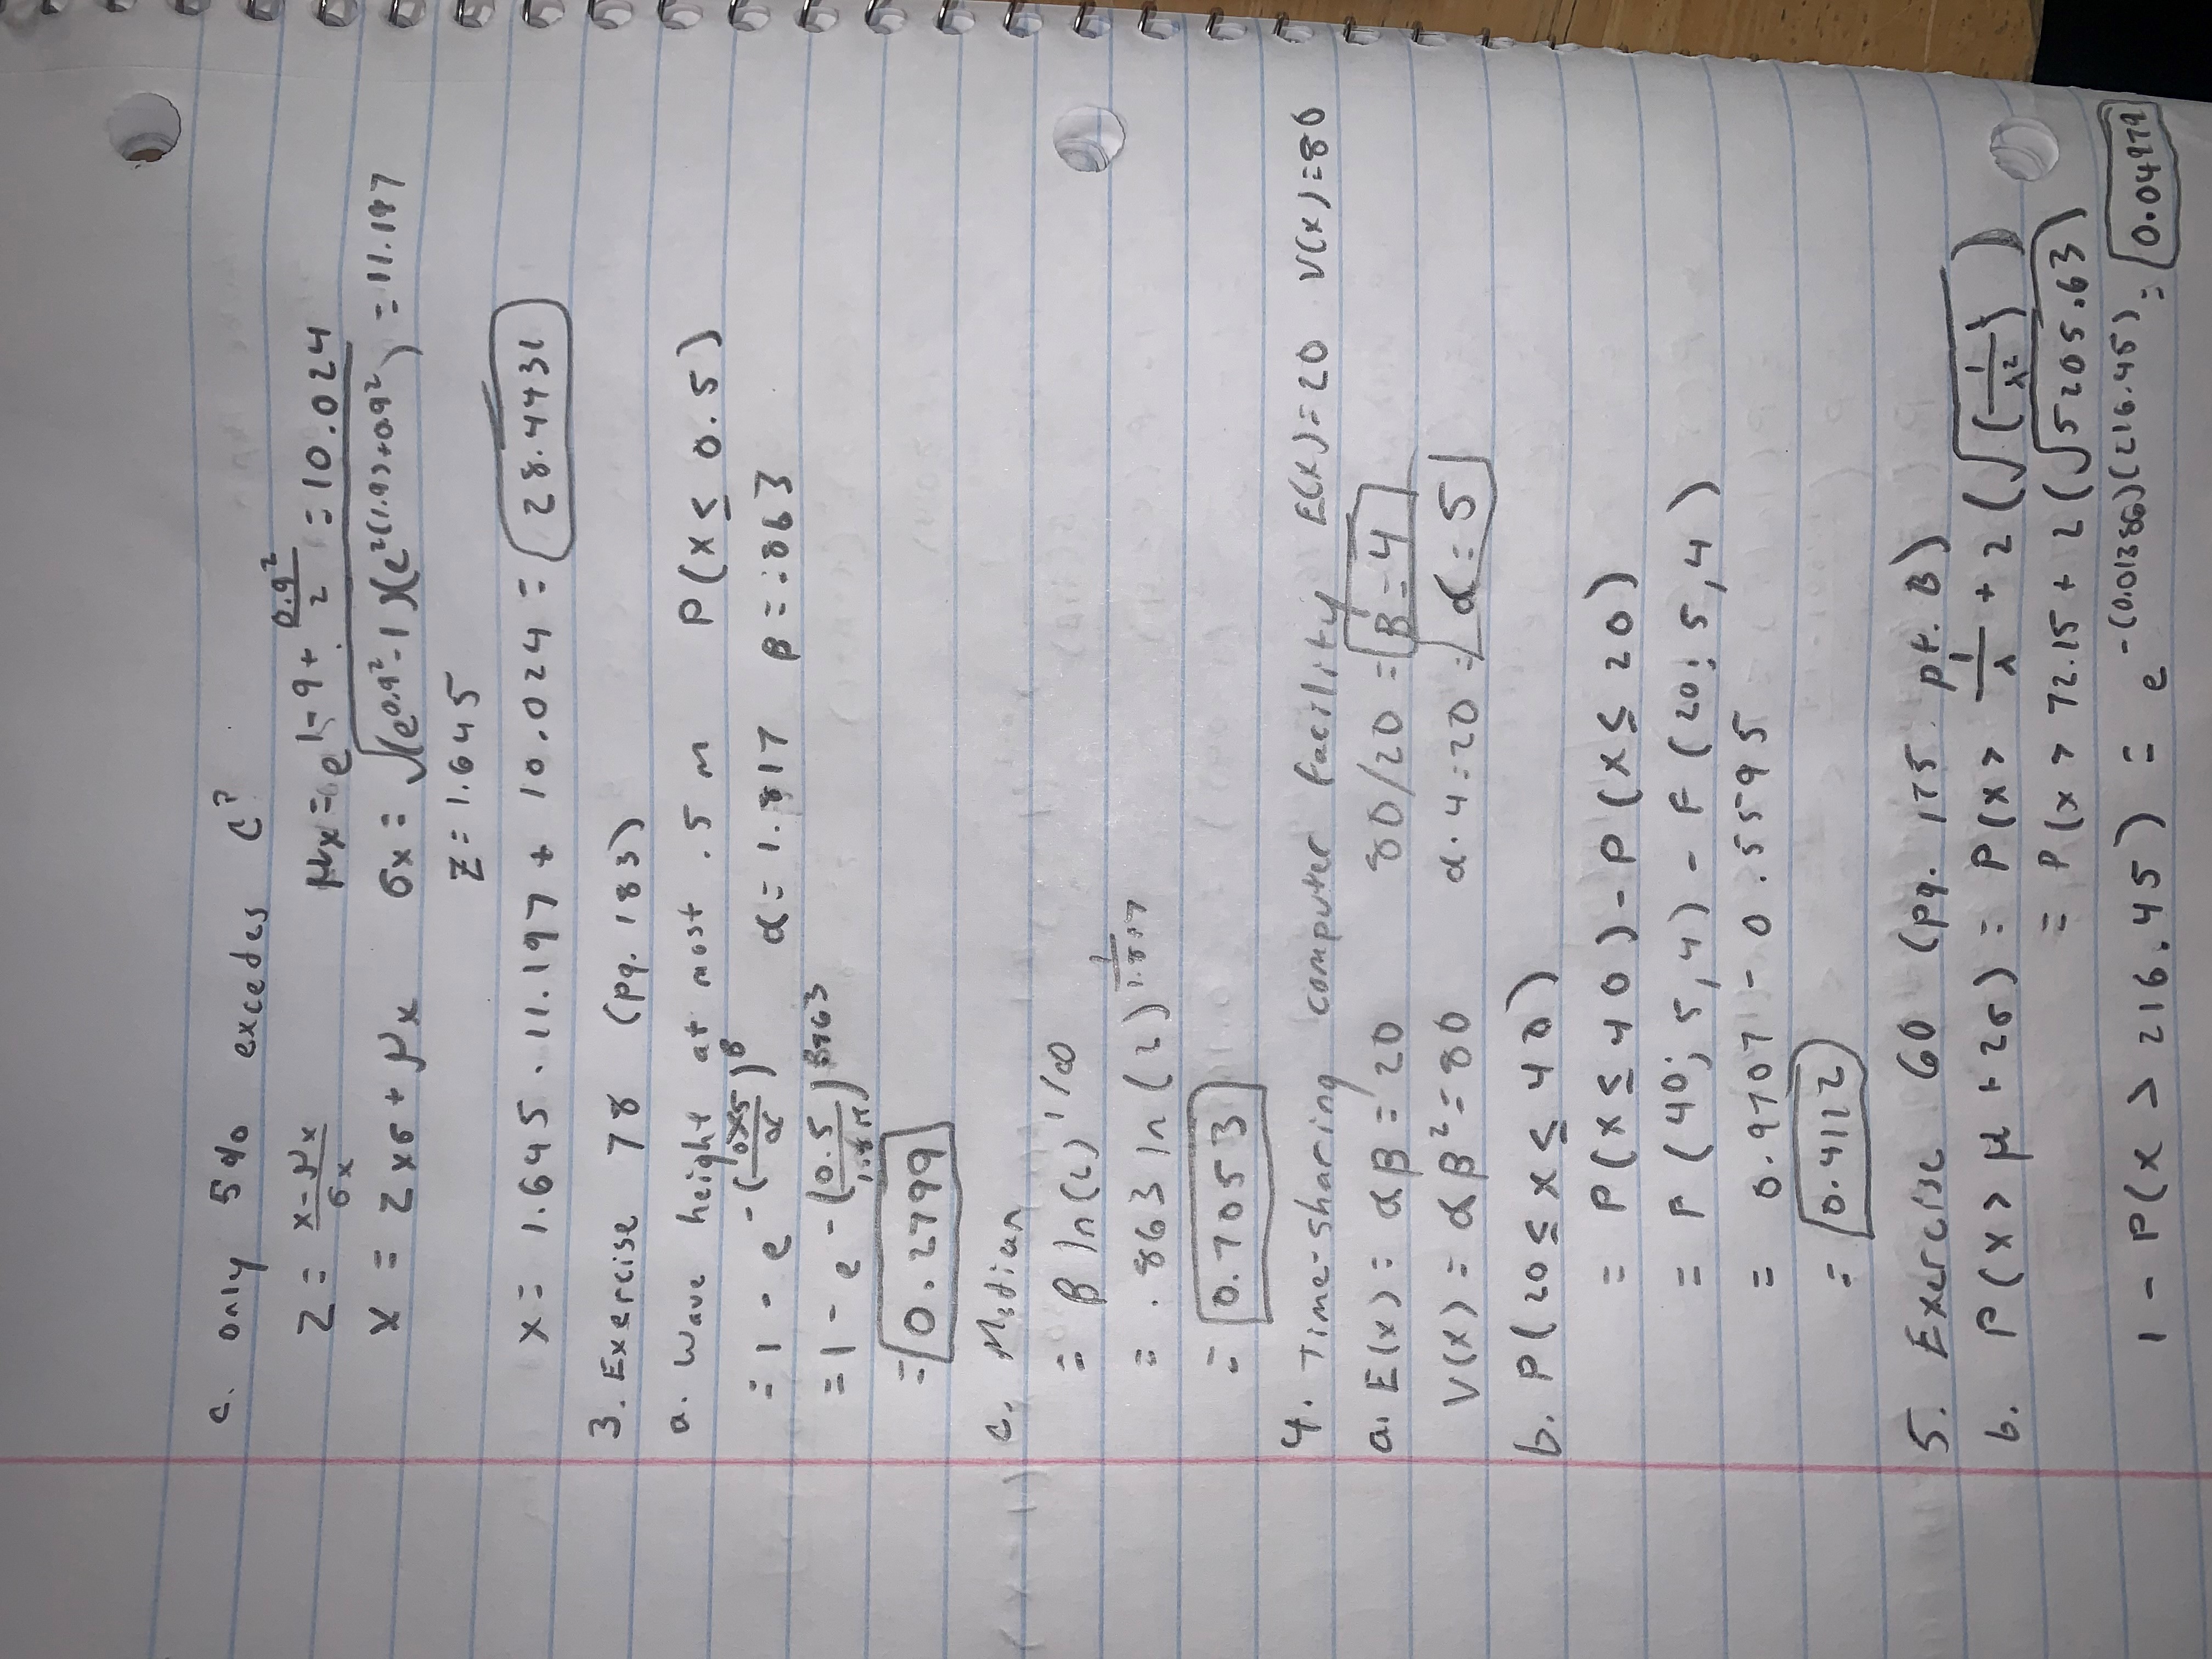 c. only 5% excedes C?
Z = (x - μx)/σx    μx = e^(1.9 + 0.9²/2) = 10.024
x = Z×σ + μx    σx = √((e^0.9² - 1)(e^(2(1.9)+0.9²)) = 11.197
Z = 1.645
x = 1.645 · 11.197 + 10.024 = 28.4431
3. Exercise 78 (pg. 183)
a. Wave height at most .5 m    P(x ≤ 0.5)
= 1 - e^-(0.5/α)^β    α = 1.817    β = .863
= 1 - e^-(0.5/1.817)^.863
= 0.2799
c. Median
= β ln(2)^1/α
= .863 ln(2)^(1/1.817)
= 0.7053
4. Time-sharing computer facility E(x)=20 V(x)=80
a. E(x) = αβ = 20    80/20 = β = 4
V(x) = αβ² = 80    α · 4 = 20 = α = 5
b. P(20 ≤ x ≤ 40)
= P(x ≤ 40) - P(x ≤ 20)
= F(40; 5,4) - F(20; 5,4)
= 0.9707 - 0.5595
= 0.4112
5. Exercise 60 (pg. 175 pt. B)
b. P(x > μ + 2σ) = P(x > 1/λ + 2(√(1/λ²))
= P(x > 72.15 + 2(√5205.63)
1 - P(x > 216.45) = e^-(0.01386)(216.45) = 0.04979